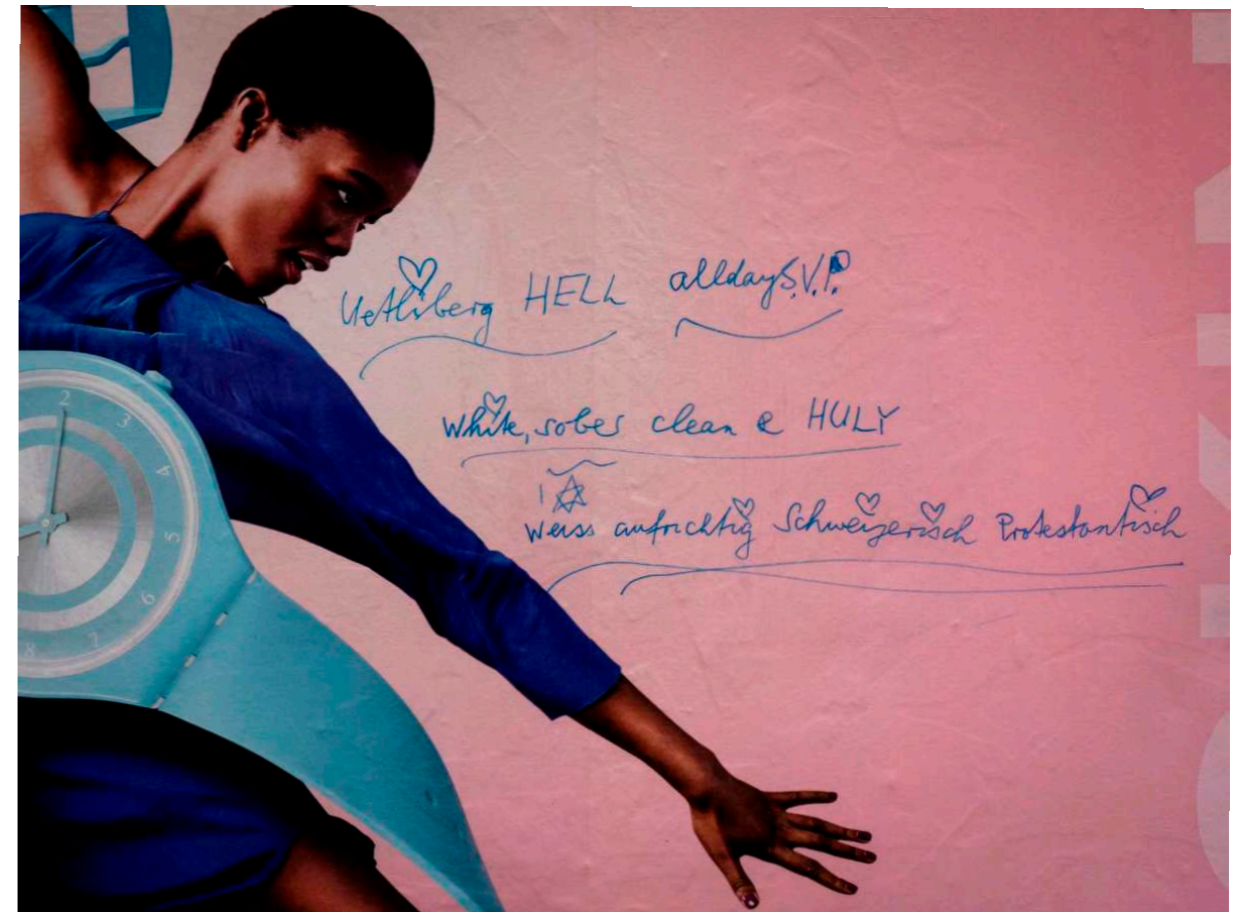 Uetliberg HELL alldayS.V.P.
White, sober clean & HULY
Weiss aufrichtig Schweizerisch Protestantisch
2
3
4
5
6
7
8